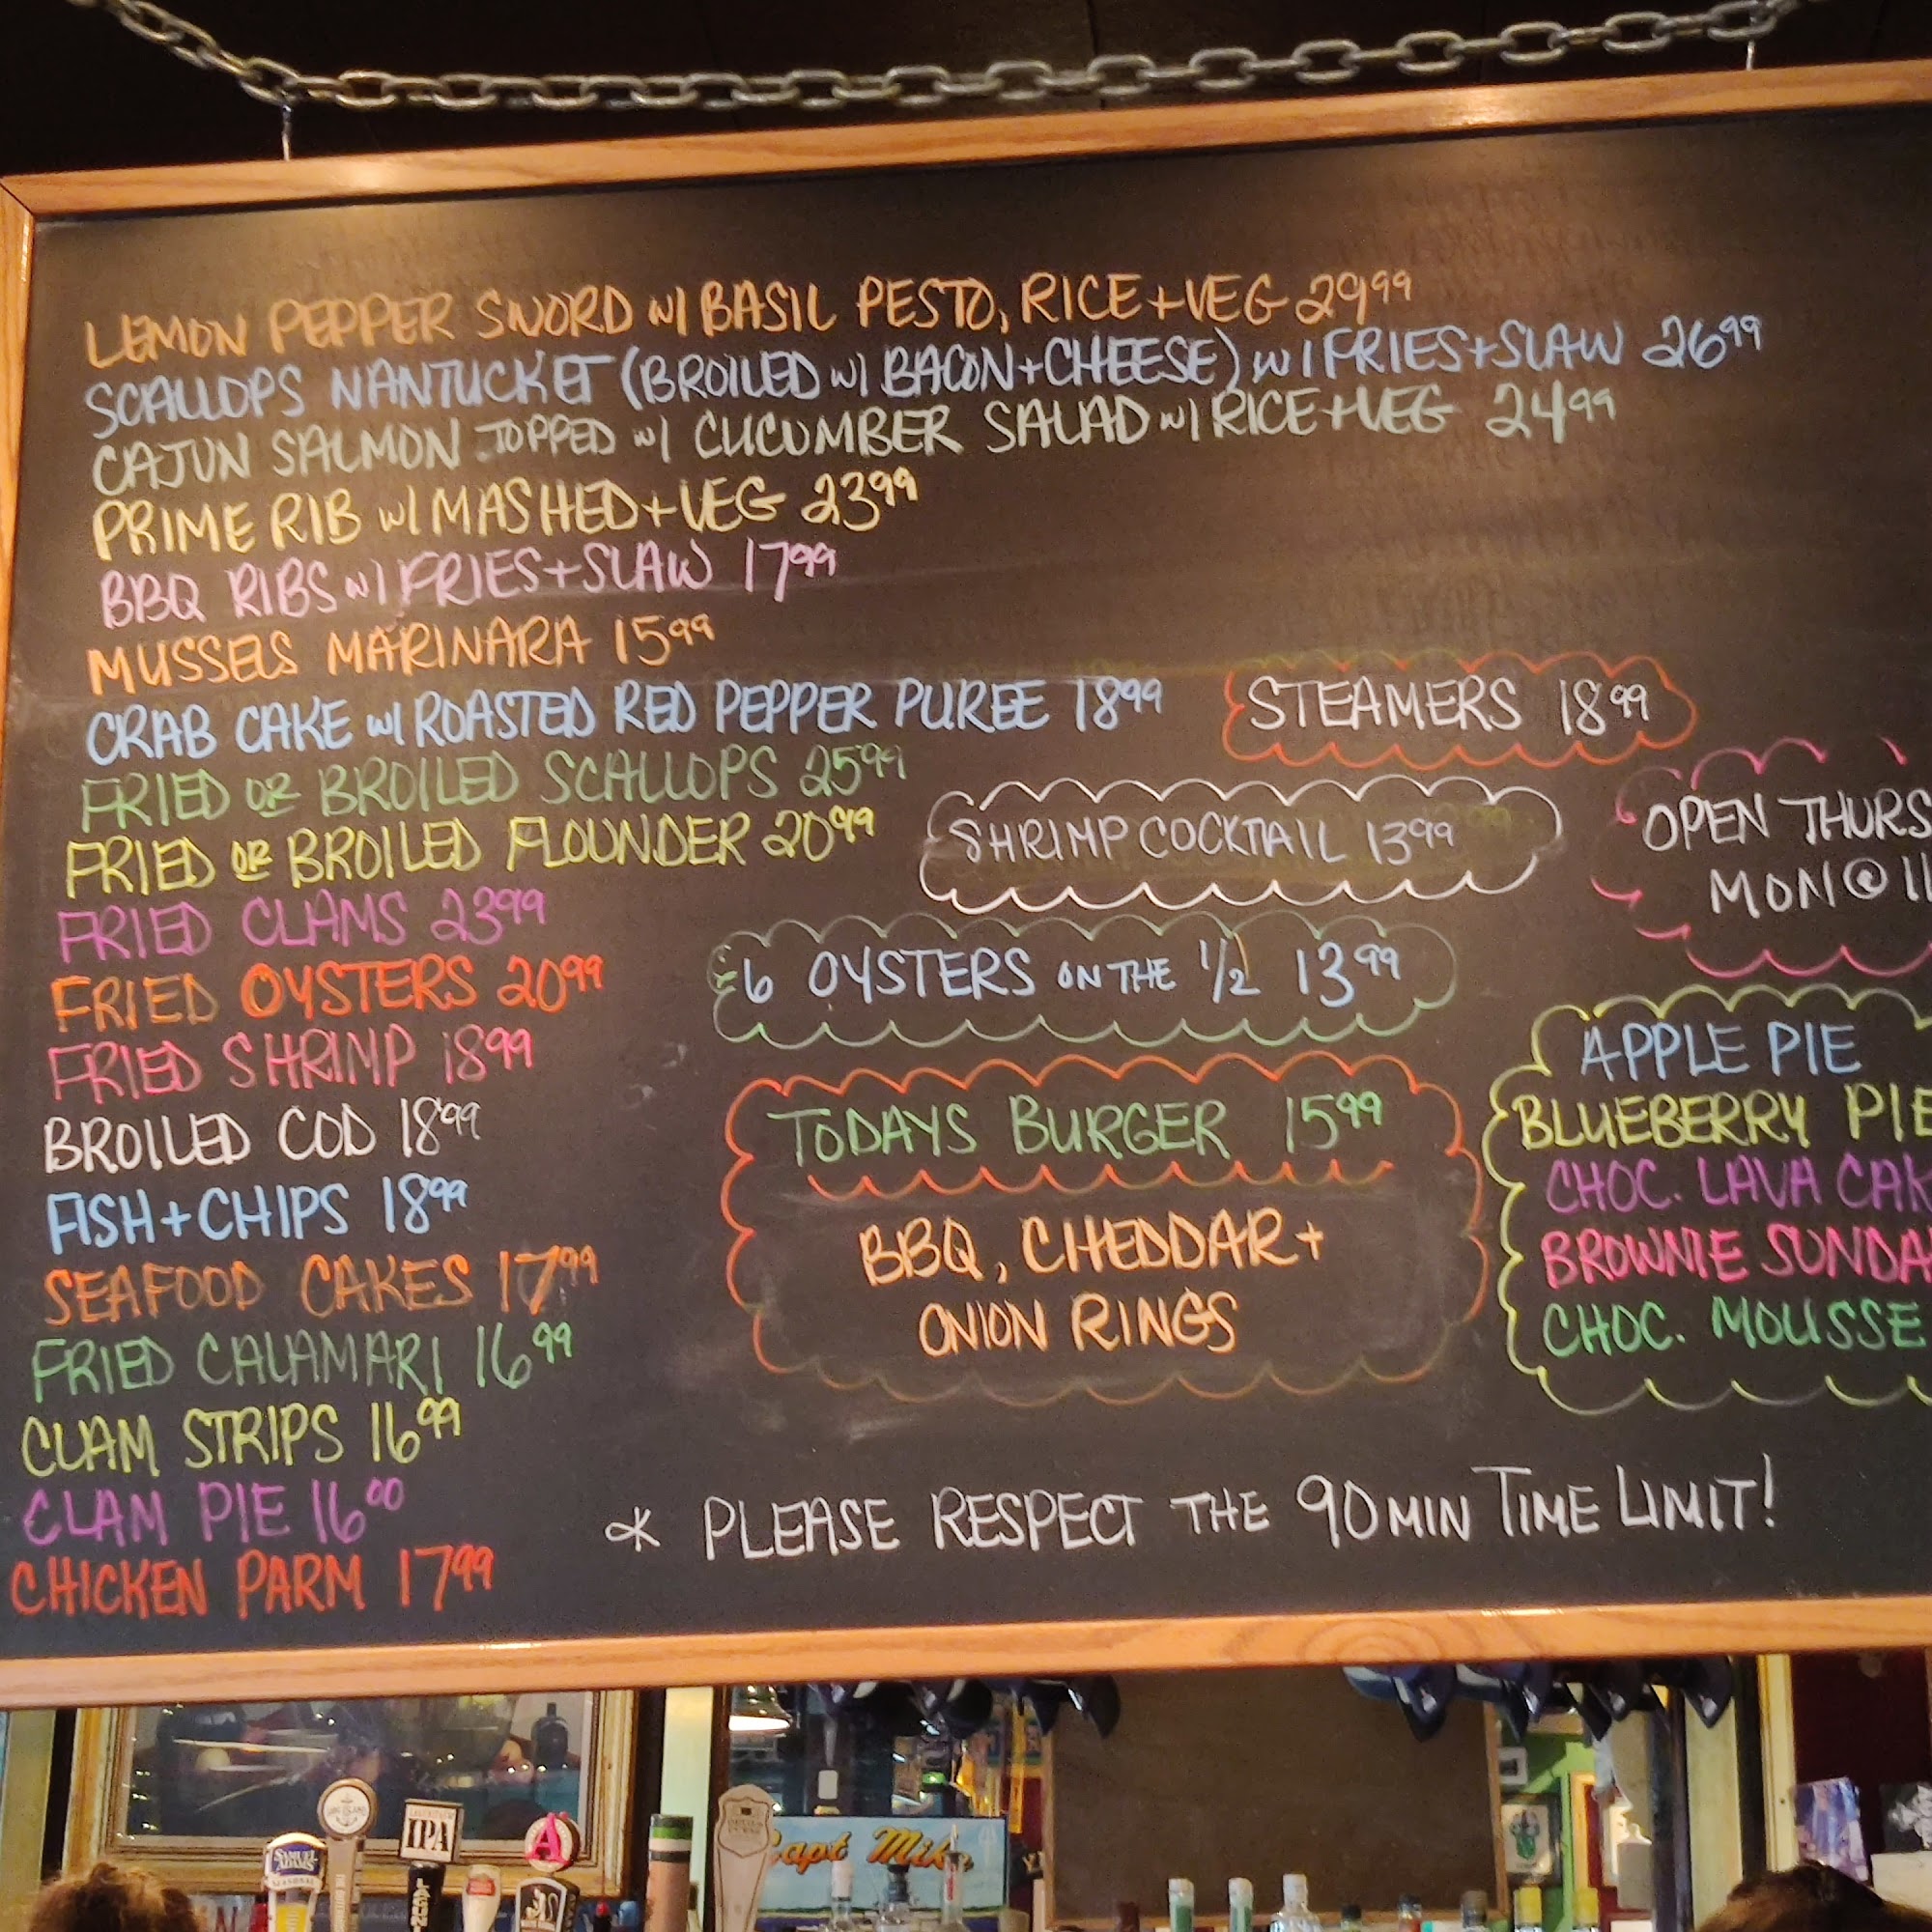 LEMON PEPPER SWORD W/ BASIL PESTO, RICE+VEG 29⁹⁹
SCALLOPS NANTUCKET (BROILED W/ BACON+CHEESE) W/ FRIES+SLAW 26⁹⁹
CAJUN SALMON TOPPED W/ CUCUMBER SALAD W/ RICE+VEG 24⁹⁹
PRIME RIB W/ MASHED+VEG 23⁹⁹
BBQ RIBS W/ FRIES+SLAW 17⁹⁹
MUSSELS MARINARA 15⁹⁹
CRAB CAKE W/ ROASTED RED PEPPER PUREE 18⁹⁹
FRIED OR BROILED SCALLOPS 25⁹⁹
FRIED OR BROILED FLOUNDER 20⁹⁹
FRIED CLAMS 23⁹⁹
FRIED OYSTERS 20⁹⁹
FRIED SHRIMP 18⁹⁹
BROILED COD 18⁹⁹
FISH+CHIPS 18⁹⁹
SEAFOOD CAKES 17⁹⁹
FRIED CALAMARI 16⁹⁹
CLAM STRIPS 16⁹⁹
CLAM PIE 16⁰⁰
CHICKEN PARM 17⁹⁹
STEAMERS 18⁹⁹
SHRIMP COCKTAIL 13⁹⁹
6 OYSTERS ON THE 1/2 13⁹⁹
TODAYS BURGER 15⁹⁹
BBQ, CHEDDAR+
ONION RINGS
OPEN THURS
MON @ 11
APPLE PIE
BLUEBERRY PIE
CHOC. LAVA CAK
BROWNIE SUNDA
CHOC. MOUSSE
* PLEASE RESPECT THE 90 MIN TIME LIMIT!
SAMUEL
ADAMS
SEASONAL
IPA
A
Capt Mike